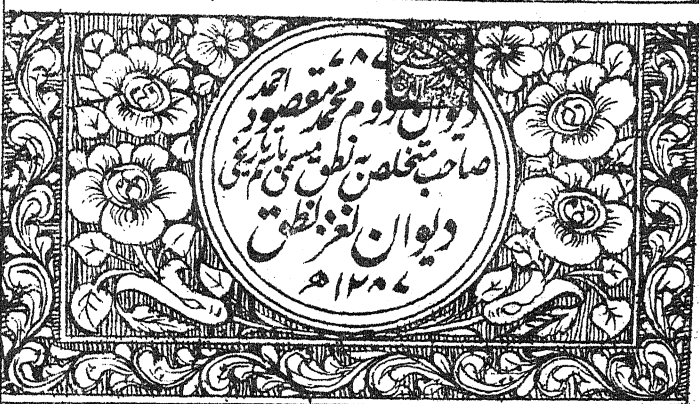 دیوان دوم محمد مقصود احمد
صاحب متخلص بہ نطق مسمی باسم تاریخی
دیوان نغز نطق
۱۲۸۷ھ